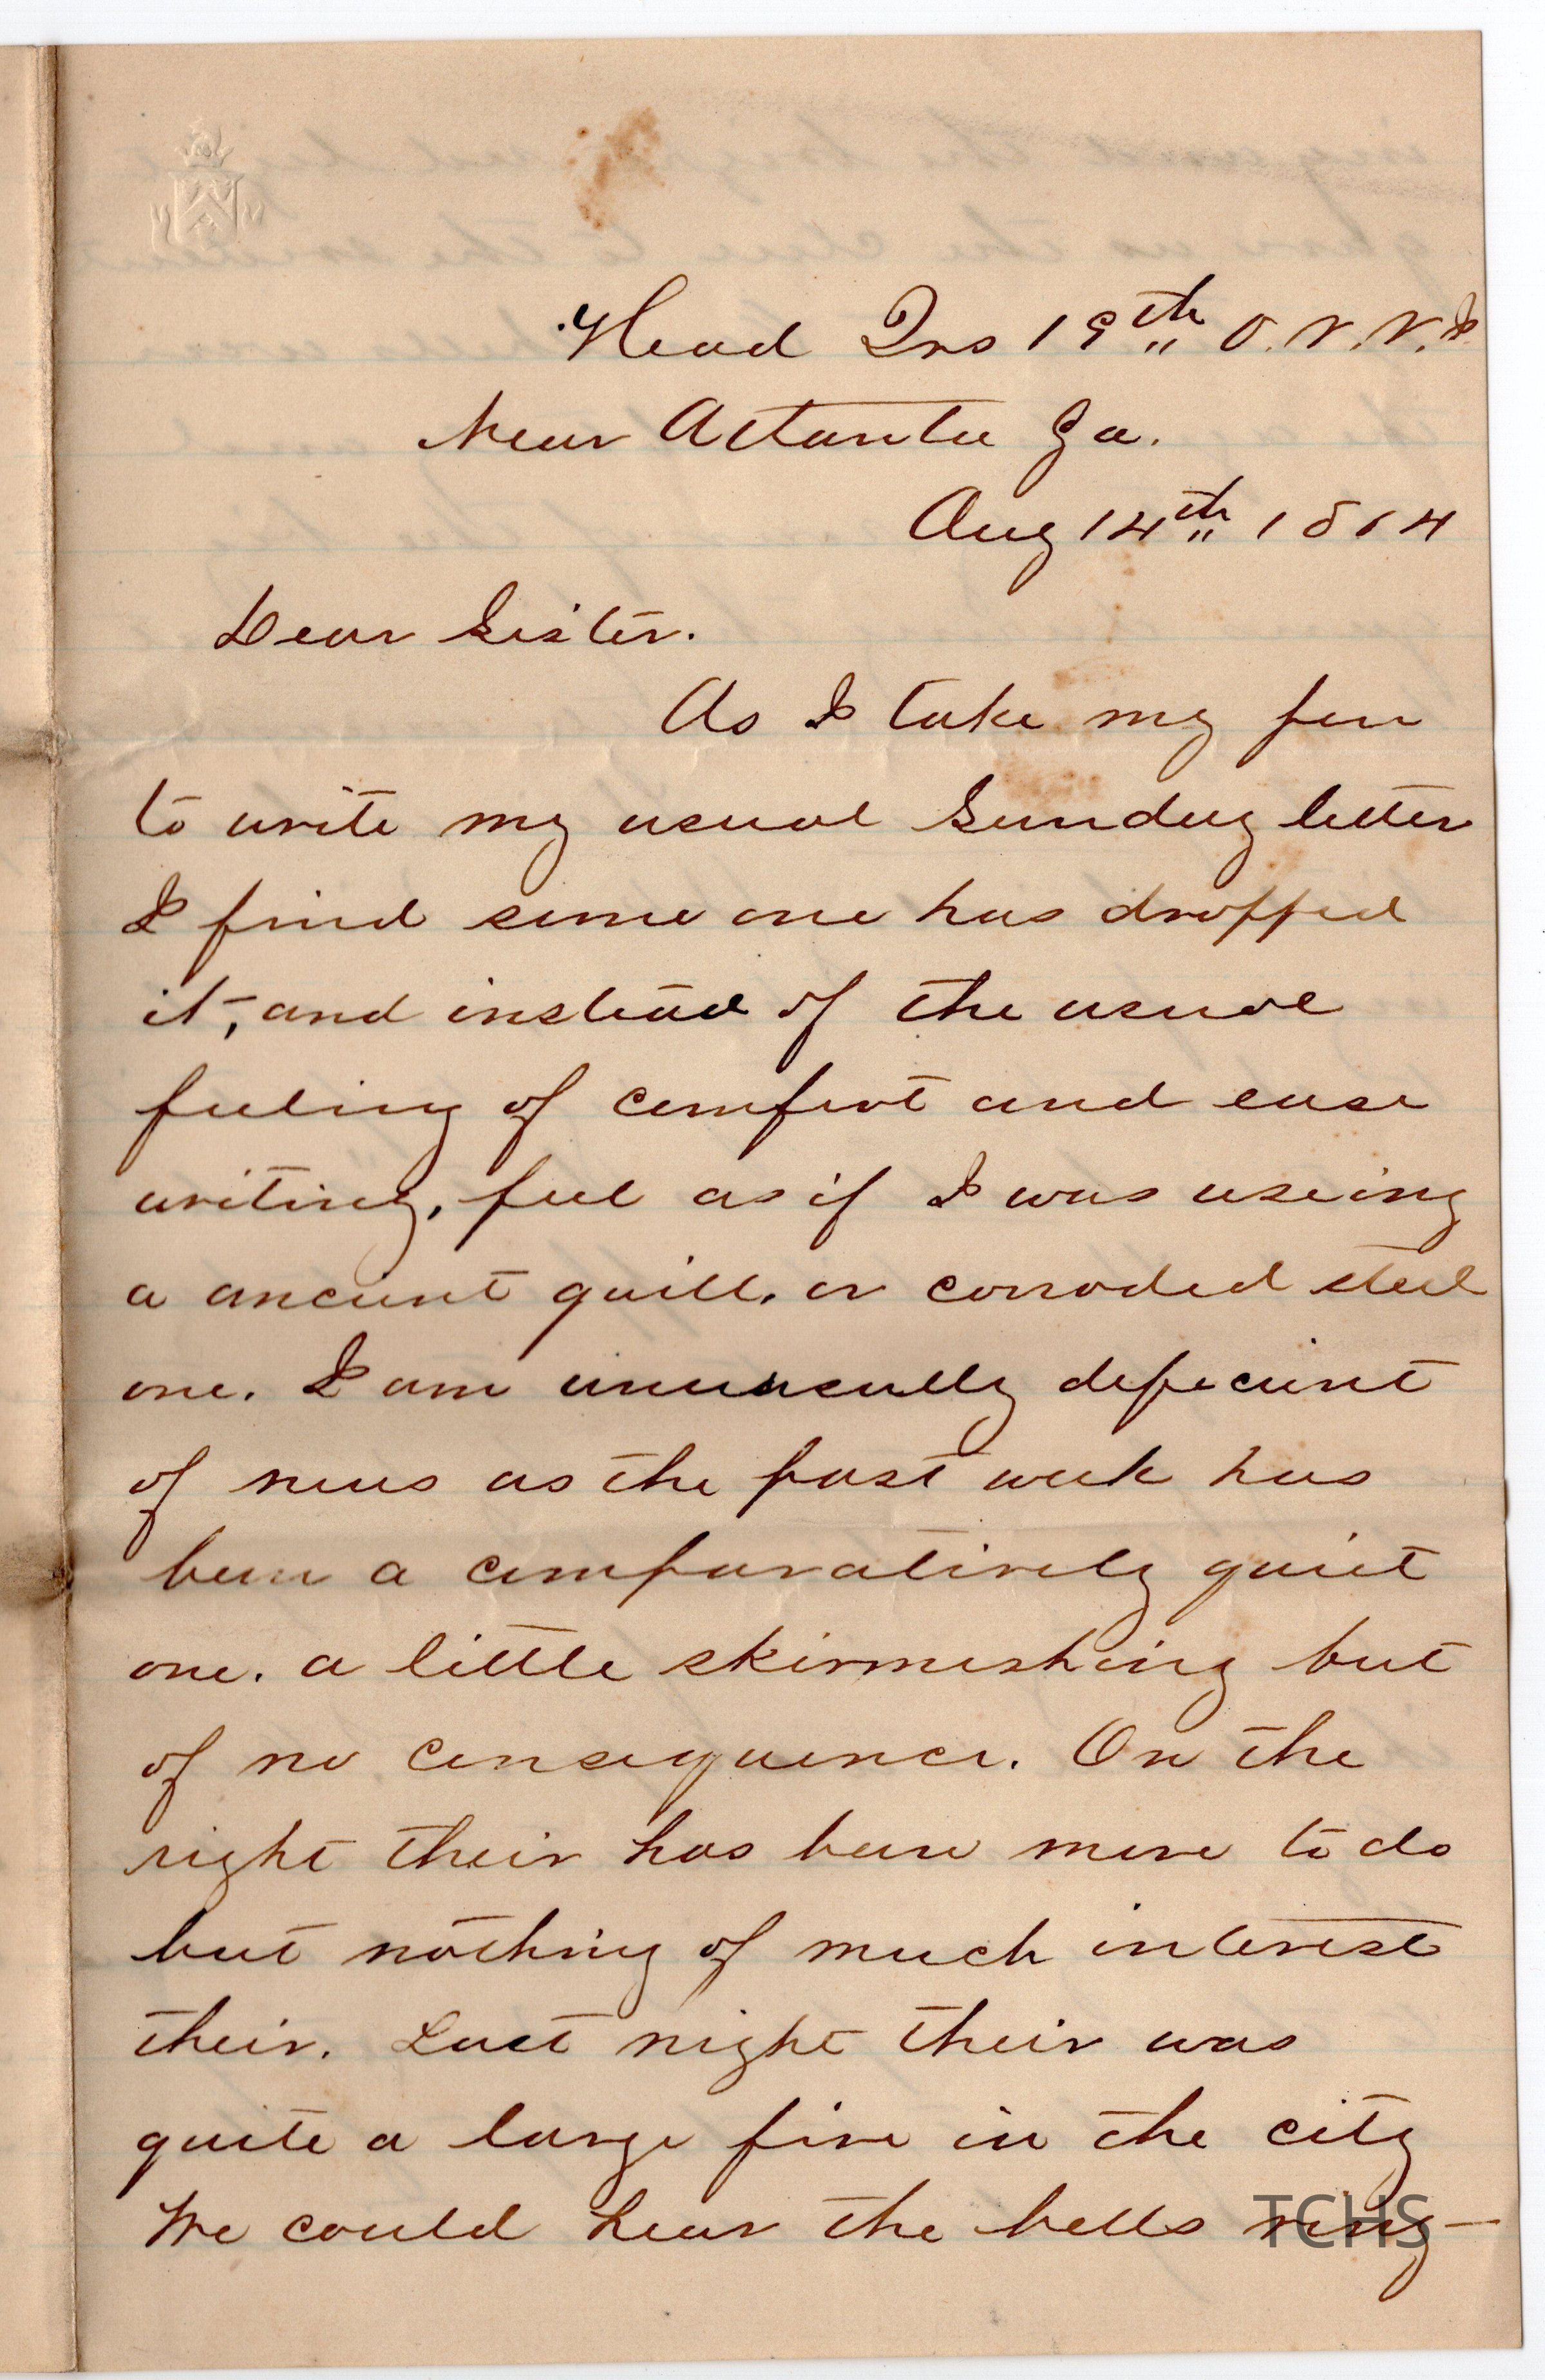 Head Qrs 19th O.V.V.I.
Near Atlanta Ga.
Aug 14th 1864
Dear Sister.
As I take my pen
to write my usual Sunday letter
I find some one has dropped
it, and instead of the usual
feeling of comfort and ease
writing, feel as if I was useing
a ancient quill, or corroded steel
one. I am unusually deficient
of news as the past week has
been a comparatively quiet
one. a little skirmishing but
of no consequence. On the
right their has been more to do
but nothing of much interest
their. Last night their was
quite a large fire in the city
We could hear the bells ring-
TCHS